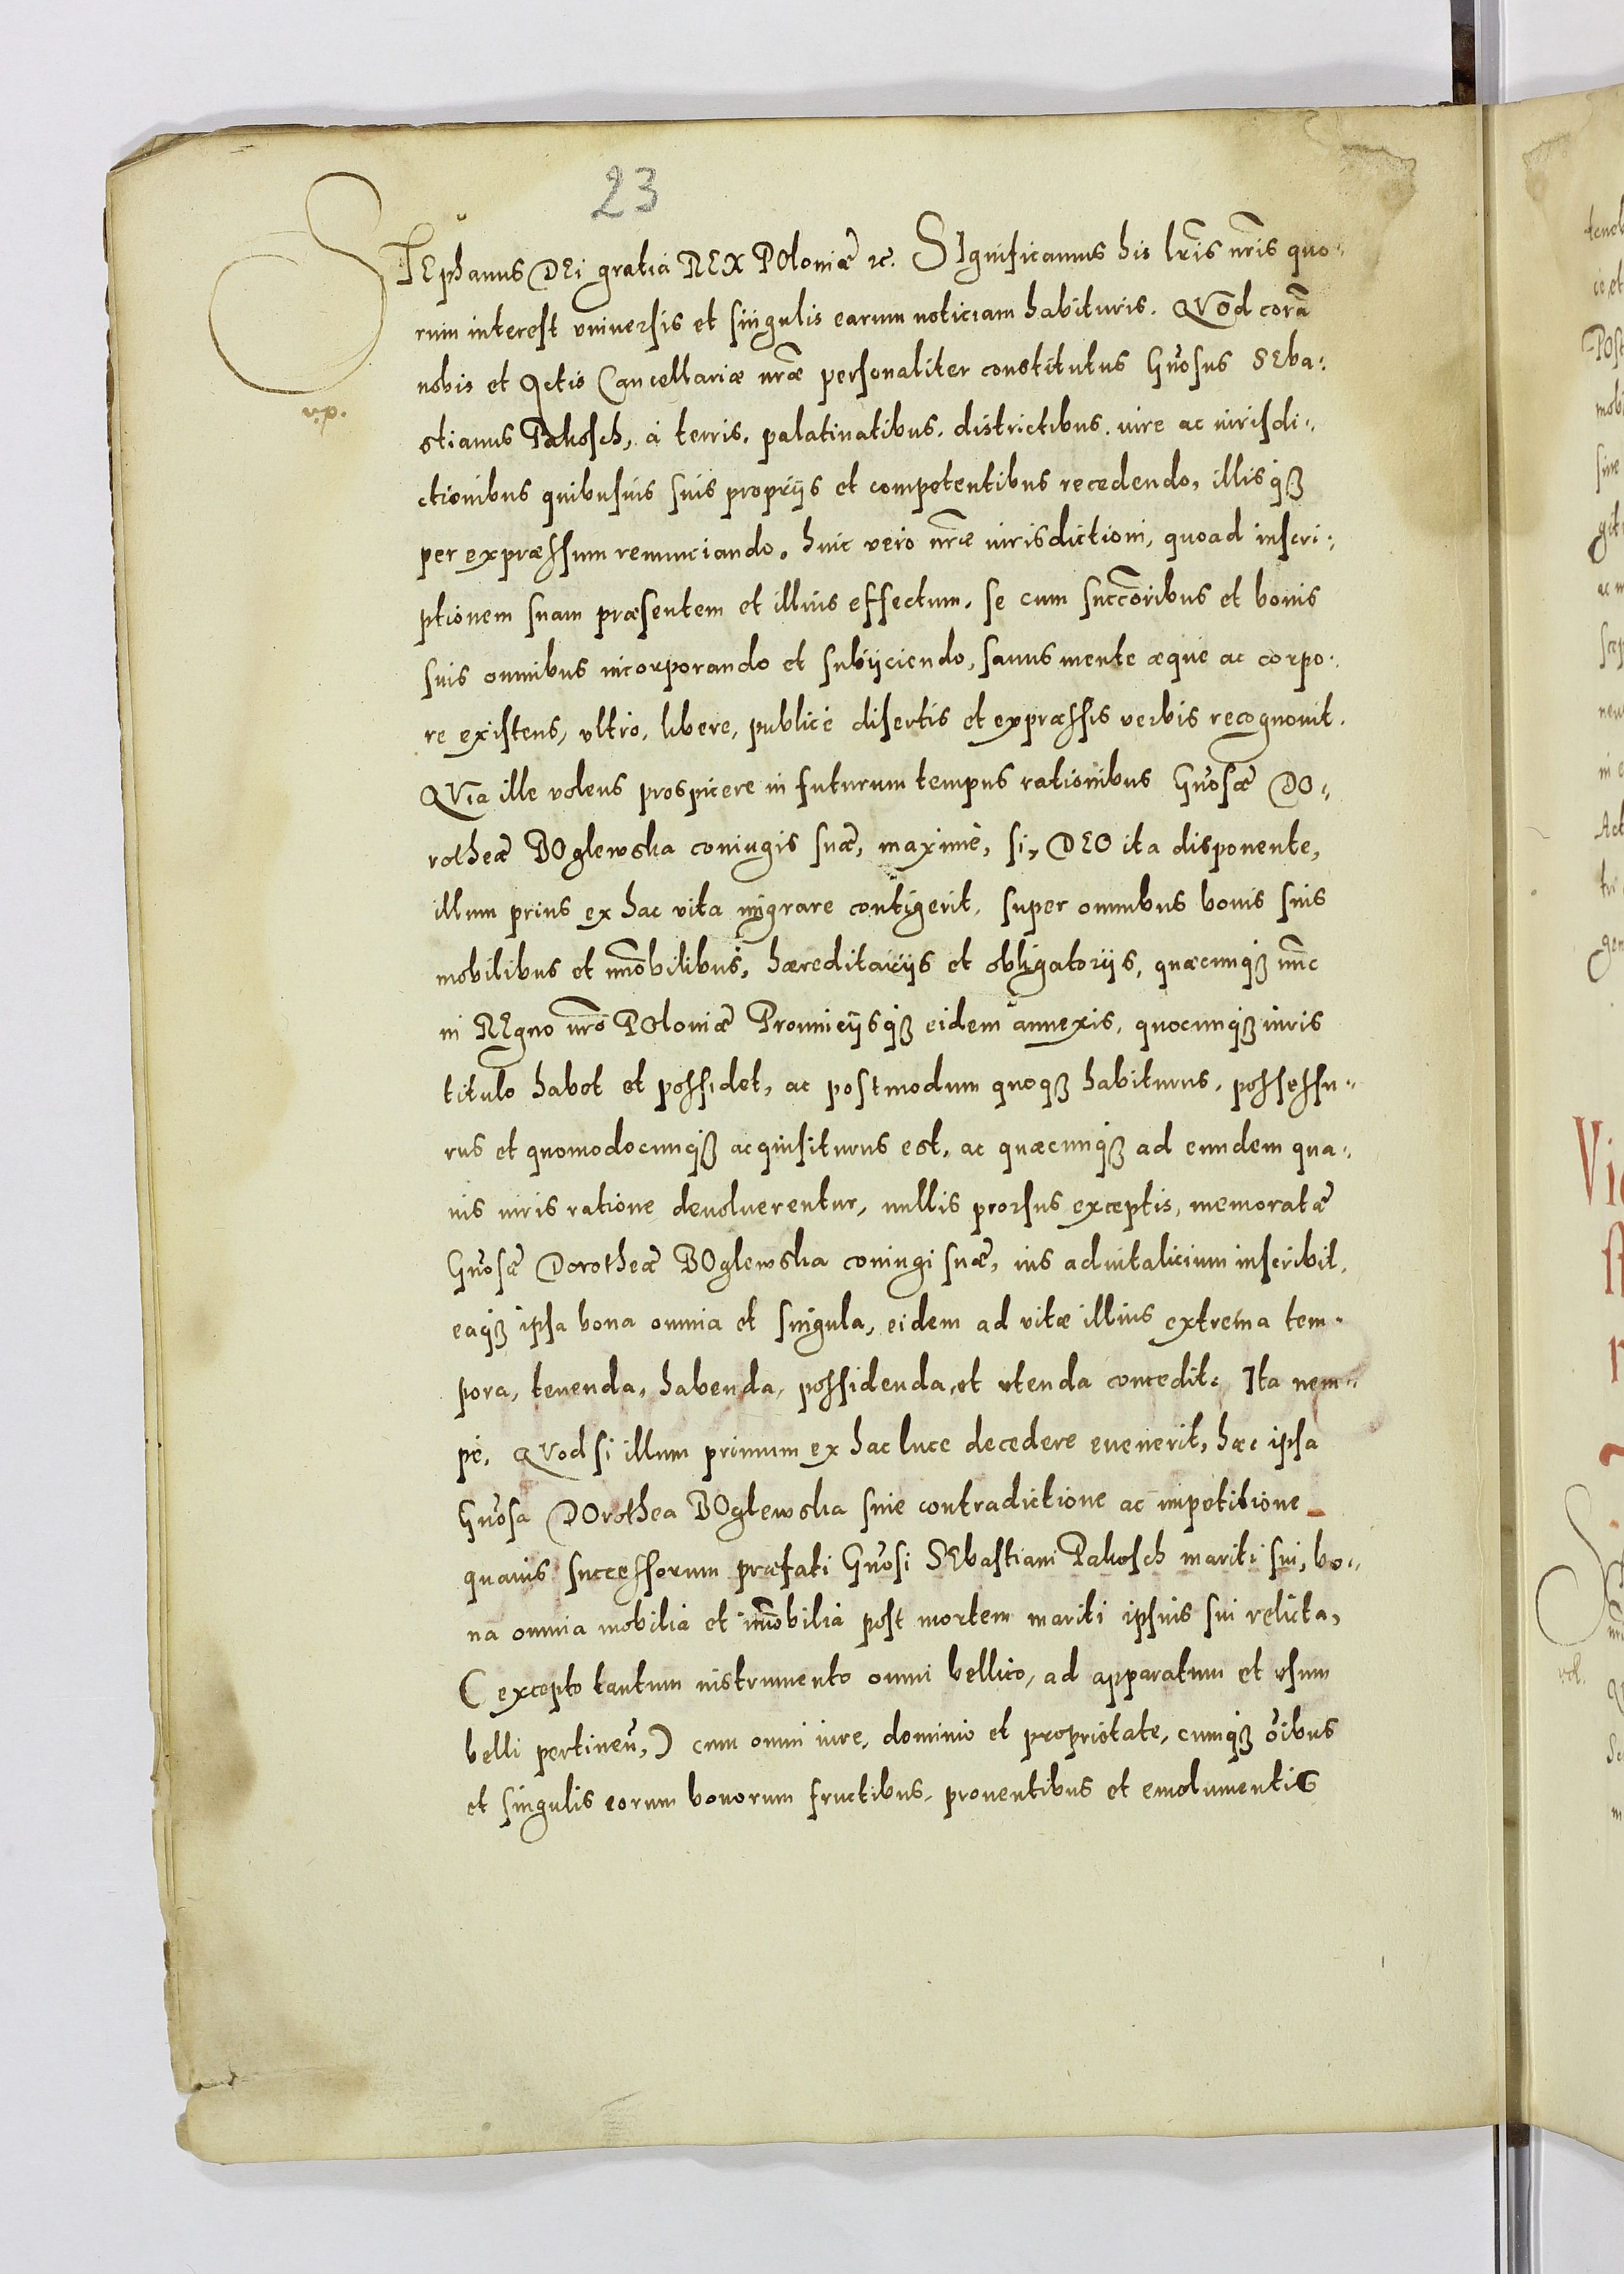 23
STEphanus DEi gratia REX POloniæ ꝛc. SIgnificamus his lr̃is nr̃is quo-
rum interest vniuersis et singulis earum noticiam habituris. QVod corã
nobis et Actis Cancellariæ nr̃æ personaliter constitutus Gn̄osus SEba-
stianus Pakosch, à terris, palatinatibus, districtibus, iure ac iurisdi-
ctionibus quibusuis suis proprijs et competentibus recedendo, illisqȝ
per expræssum renunciando, huic verò nr̃æ iurisdictioni, quoad inscri-
ptionem suam præsentem et illius effectum, se cum succ̃oribus et bonis
suis omnibus incorporando et subijciendo, sanus mente æque ac corpo-
re existens, vltro, libere, publicè disertis et expræssis verbis recognouit.
QVia ille volens prospicere in futurum tempus rationibus Gn̄osæ DO-
rotheæ BOglewska coniugis suæ, maximè, si, DEO ita disponente,
illum prius ex hac vita migrare contigerit, super omnibus bonis suis
mobilibus et im̃obilibus, hæreditarijs et obligatorijs, quæcunqȝ nũc
in REgno nr̃o POloniæ Prouincijsqȝ eidem annexis, quocunqȝ iuris
titulo habet et possidet, ac postmodum quoqȝ habiturus, possessu-
rus et quomodocunqȝ acquisiturus est, ac quæcunqȝ ad eundem qua-
uis iuris ratione deuoluerentur, nullis prorsus exceptis, memoratæ
Gn̄osæ Dorotheæ BOglewska coniugi suæ, ius aduitalicium inscribit,
eaqȝ ipsa bona omnia et singula, eidem ad vitæ illius extrema tem-
pora, tenenda, habenda, possidenda, et vtenda concedit. Ita nem-
pè, QVod si illum primum ex hac luce decedere euenerit, hæc ipsa
Gn̄osa DOrothea BOglewska sine contradictione ac impetitione
quauis successorum præfati Gn̄osi SEbastiani Pakosch mariti sui, bo-
na omnia mobilia et im̃obilia post mortem mariti ipsius sui relicta,
(excepto tantum instrumento omni bellico, ad apparatum et vsum
belli pertineñ,) cum omni iure, dominio et proprietate, cumqȝ õibus
et singulis eorum bonorum fructibus, prouentibus et emolumentis